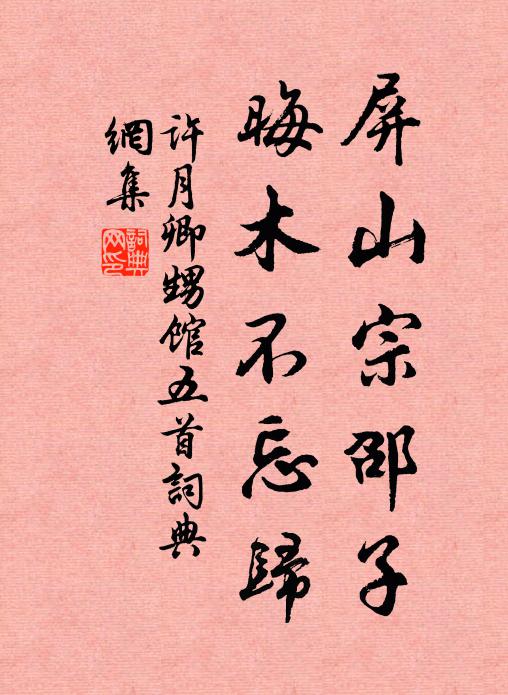 屏山宗邵子
晦木不忘歸
許月卿甥館五首詞典
網集
詞典網印